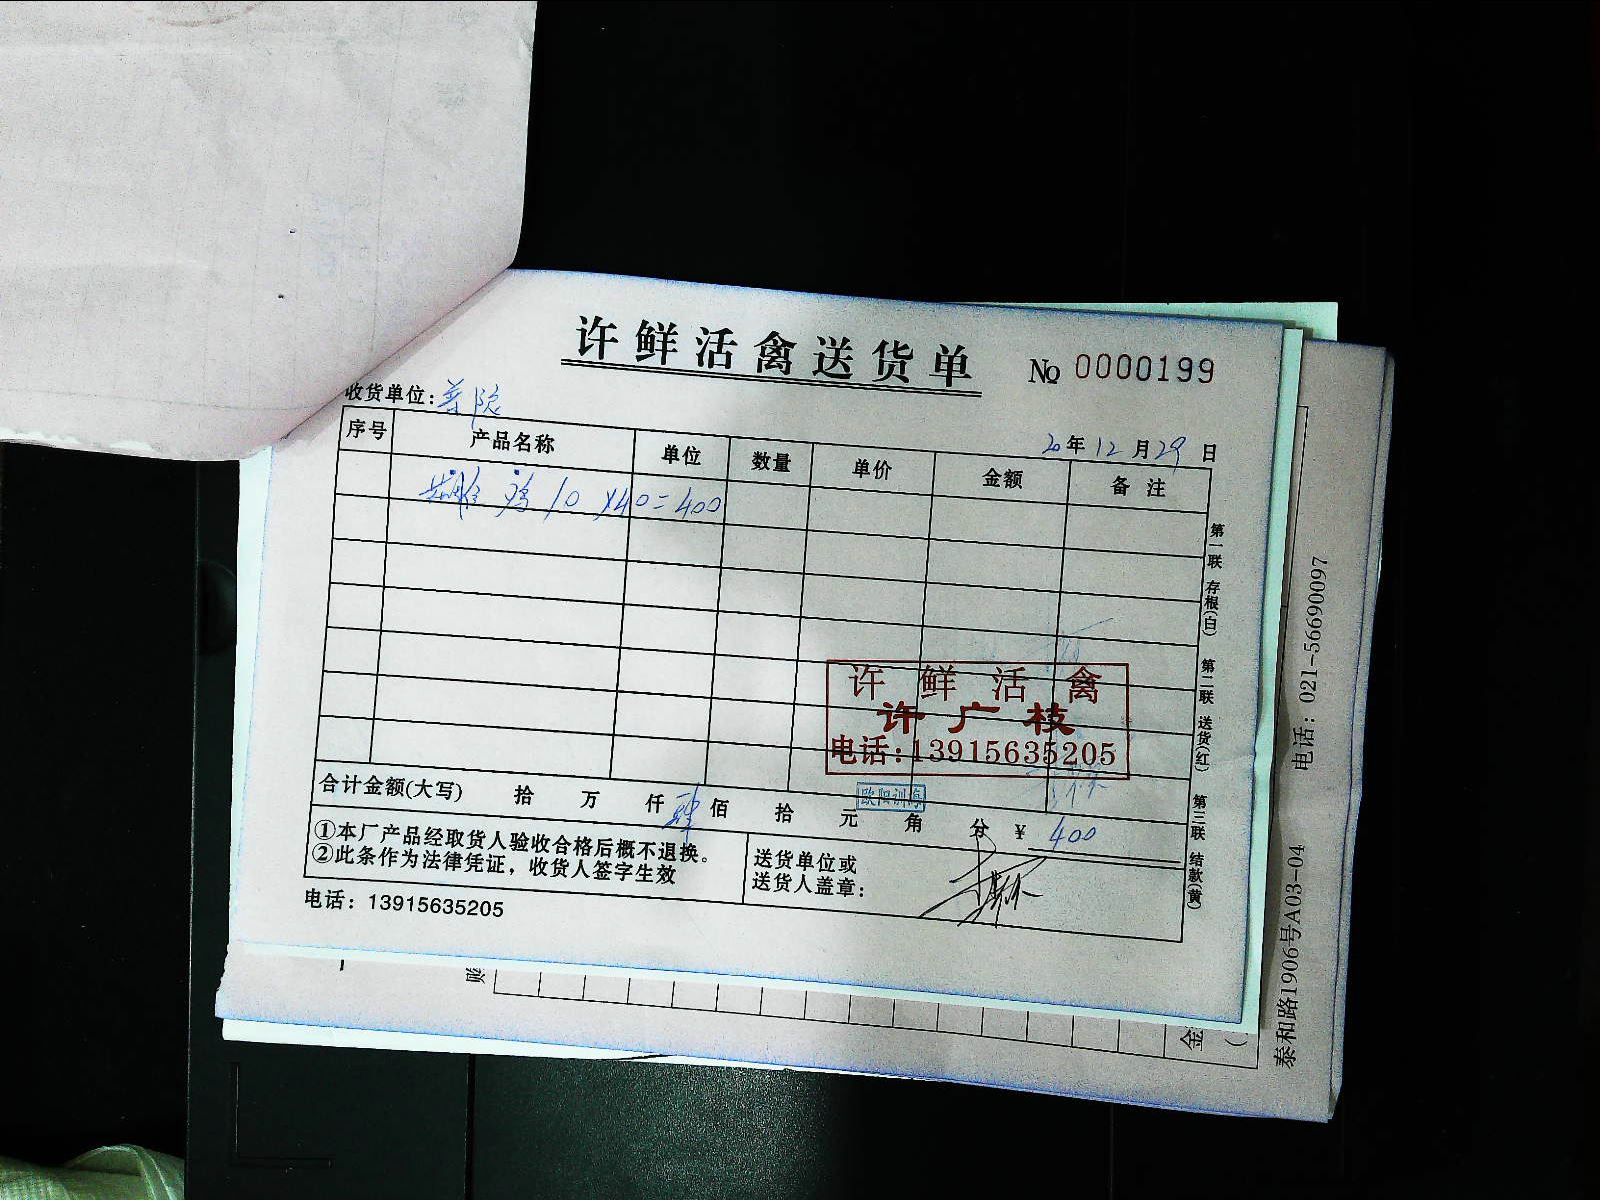 许鲜活禽送货单 № 0000199
收货单位:
20年12月29日
序号 产品名称 单位 数量 单价 金额 备注
鸡 10 X40=400
第一联 存根(白) 第二联 送货(红) 第三联 结款(黄)
许鲜活禽
许广枝
电话:13915635205
合计金额(大写) 拾 万 仟 肆佰 拾 元 角 分 ¥ 400
①本厂产品经取货人验收合格后概不退换。
②此条作为法律凭证，收货人签字生效
送货单位或
送货人盖章:
电话：13915635205
电话：021-56690097
泰和路1906号A03-04
金